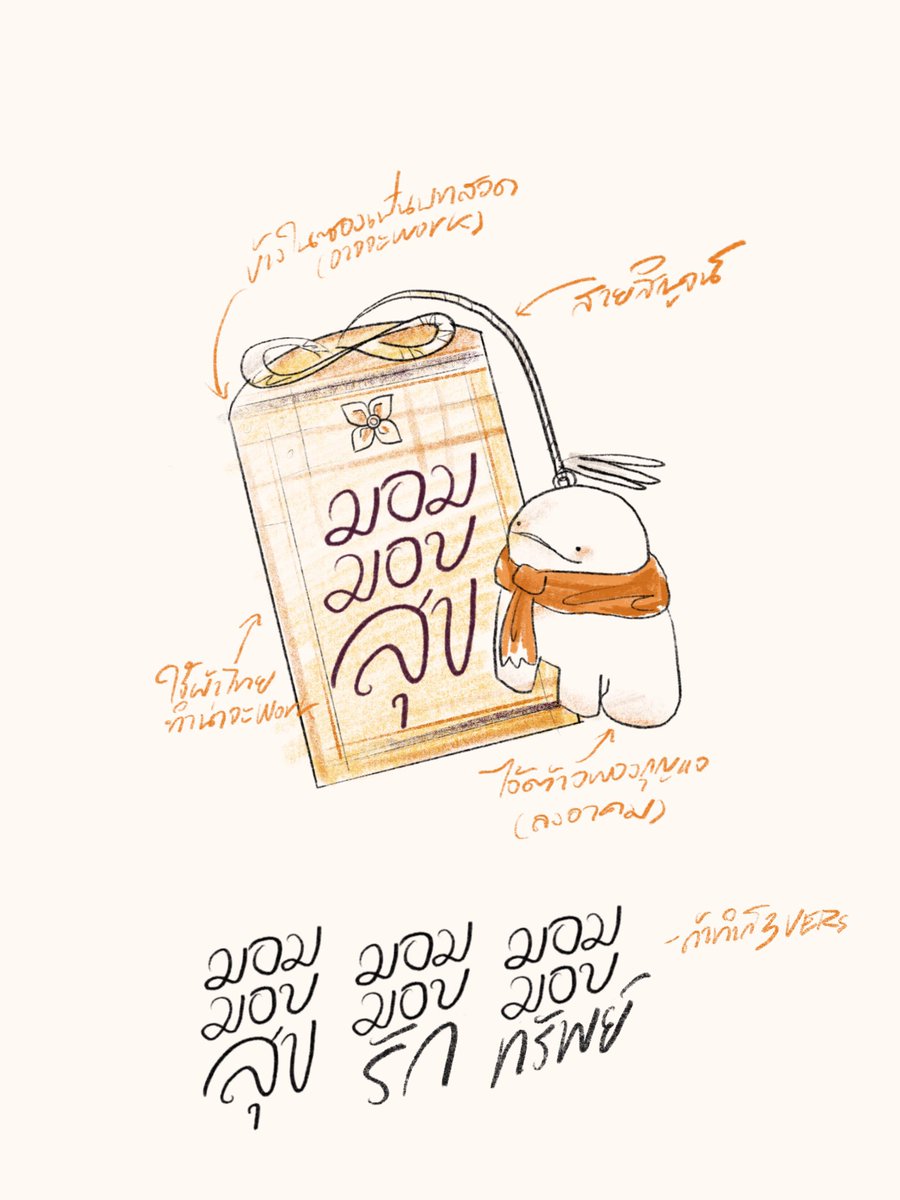 ข้างในซองเป็นบทสวด
(อาจจะwork)
สายสิญจน์
มอม
มอบ
สุข
ใช้ผ้าไทย
ทำน่าจะwork
ไอ้ต้าวพวงกุญแจ
(ลงอาคม)
มอม
มอบ
สุข
มอม
มอบ
รัก
มอม
มอบ
ทรัพย์
-ถ้าทำก็ 3 VERS